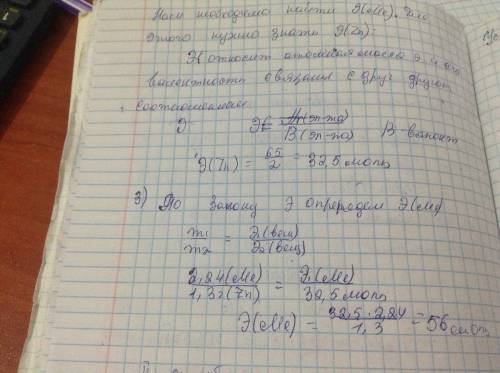 Нам необходимо найти Э(Ме). Для
этого нужно знать Э(Zn).
Э относит атомная масса Э и его
валентность связаны с друг другом
соотношением
Э Э= Ar(эл-та)
В(эл-та) В-валент
Э(Zn) = 65/2 = 32,5 моль
3) По закону Э определяем Э(Ме)
m1/m2 = Э1(вещ)/Э2(вещ)
2,24(Ме)/1,3г(Zn) = Э(Ме)/32,5 моль
Э(Ме) = 32,5·2,24/1,3 = 56 моль